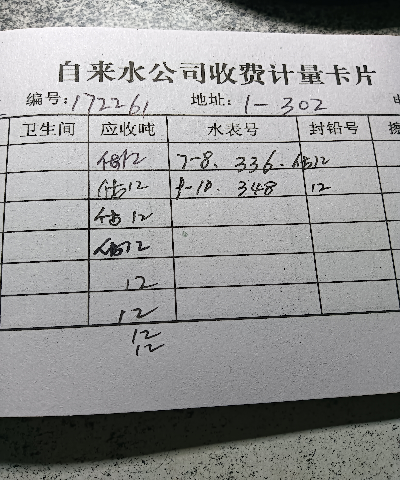 自来水公司收费计量卡片
编号:172261 地址:1-302
卫生间 应收吨 水表号 封铅号
估12 7-8. 336. 估12
估12 9-10. 348 12
估12
估12
12
12
12
12